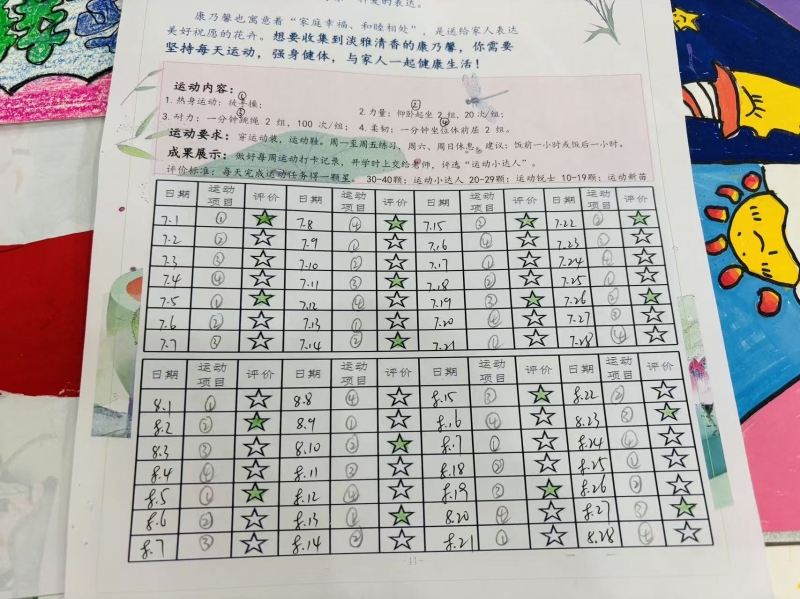 康乃馨也寓意着“家庭幸福、和睦相处”，是送给家人表达
美好祝愿的花卉。想要收集到淡雅清香的康乃馨，你需要
坚持每天运动，强身健体，与家人一起健康生活！
运动内容：
1.热身运动：徒手操； 2.力量：仰卧起坐 2 组，20 次/组；
3.耐力：一分钟跳绳 2 组，100 次/组； 4.柔韧：一分钟坐位体前屈 2 组。
运动要求：穿运动装，运动鞋。周一至周五练习，周六、周日休息。建议：饭前一小时或饭后一小时。
成果展示：做好每周运动打卡记录，开学时上交给老师，评选“运动小达人”。
评价标准：每天完成运动任务得一颗星。 30-40颗：运动小达人 20-29颗：运动锐士 10-19颗：运动新苗
日期 运动项目 评价 日期 运动项目 评价 日期 运动项目 评价 日期 运动项目 评价
7.1 ① 7.8 ④ 7.15 ③ 7.22 ②
7.2 ② 7.9 ① 7.16 ④ 7.23
7.3 ③ 7.10 ② 7.17 ① 7.24 ④
7.4 ④ 7.11 ③ 7.18 ② 7.25 ①
7.5 ① 7.12 ④ 7.19 ③ 7.26 ②
7.6 ② 7.13 ① 7.20 ④ 7.27
7.7 ③ 7.14 ② 7.21 ① 7.28 ④
日期 运动项目 评价 日期 运动项目 评价 日期 运动项目 评价 日期 运动项目 评价
8.1 ① 8.8 ④ 8.15 ③ 8.22 ②
8.2 ② 8.9 ① 8.16 ④ 8.23 ③
8.3 ③ 8.10 ② 8.17 ① 8.24 ④
8.4 ④ 8.11 ③ 8.18 ② 8.25 ①
8.5 ① 8.12 ④ 8.19 ③ 8.26 ②
8.6 ② 8.13 ① 8.20 ④ 8.27 ③
8.7 ③ 8.14 ② 8.21 ① 8.28 ④